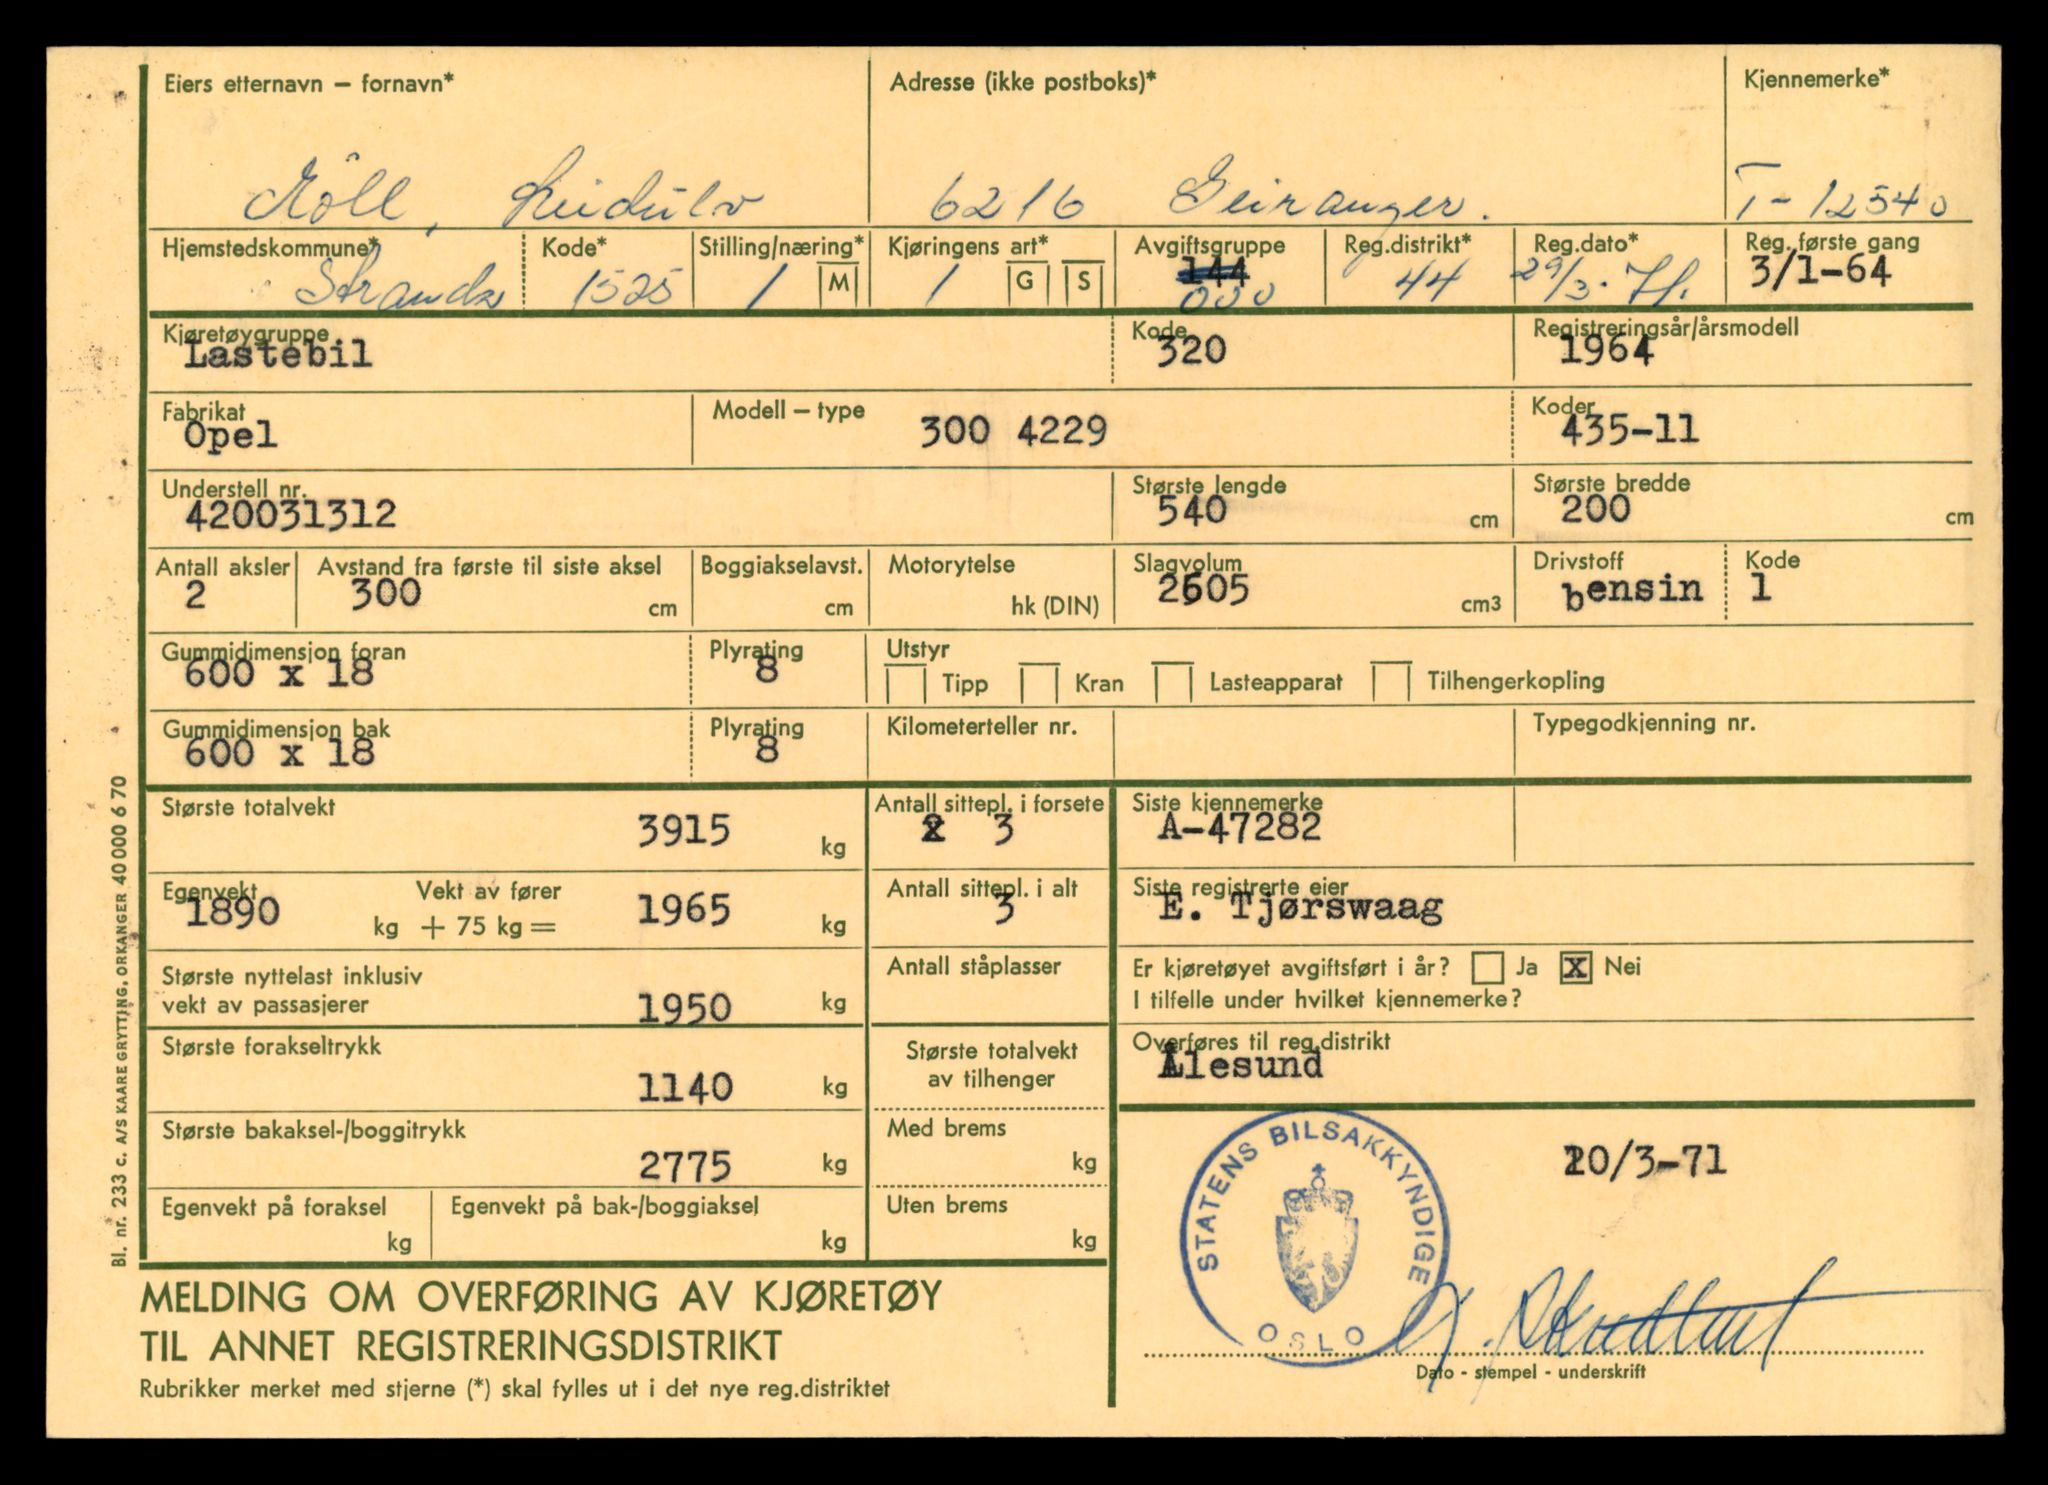 Eiers etternavn – fornavn* Adresse (ikke postboks)* Kjennemerke*
Möll, Leidulv 6216 Geiranger. T-12540
Hjemstedskommune* Kode* Stilling/næring* Kjøringens art* Avgiftsgruppe Reg.distrikt* Reg.dato* Reg. første gang
Stranda 1525 1 M 1 G S 144 000 44 29/3-71. 3/1-64
Kjøretøygruppe Kode Registreringsår/årsmodell
Lastebil 320 1964
Fabrikat Modell – type Koder
Opel 300 4229 435-11
Understell nr. Største lengde Største bredde
420031312 540 cm 200 cm
Antall aksler Avstand fra første til siste aksel Boggiakselavst. Motorytelse Slagvolum Drivstoff Kode
2 300 cm cm hk (DIN) 2605 cm3 bensin 1
Gummidimensjon foran Plyrating Utstyr
600 x 18 8 Tipp Kran Lasteapparat Tilhengerkopling
Gummidimensjon bak Plyrating Kilometerteller nr. Typegodkjenning nr.
600 x 18 8
Største totalvekt Antall sittepl. i forsete Siste kjennemerke
3915 kg 3 A-47282
Egenvekt Vekt av fører Antall sittepl. i alt Siste registrerte eier
1890 kg + 75 kg = 1965 kg 3 E. Tjørswaag
Største nyttelast inklusiv Antall ståplasser Er kjøretøyet avgiftsført i år? Ja x Nei
vekt av passasjerer 1950 kg I tilfelle under hvilket kjennemerke?
Største forakseltrykk Største totalvekt Overføres til reg.distrikt
1140 kg av tilhenger Ålesund
Største bakaksel-/boggitrykk Med brems
2775 kg kg 20/3-71
Egenvekt på foraksel Egenvekt på bak-/boggiaksel Uten brems
kg kg kg
STATENS BILSAKKYNDIGE
OSLO
MELDING OM OVERFØRING AV KJØRETØY
TIL ANNET REGISTRERINGSDISTRIKT
Dato - stempel - underskrift
Rubrikker merket med stjerne (*) skal fylles ut i det nye reg.distriktet
Bl. nr. 233 c. A/S KAARE GRYTTING, ORKANGER 40 000 6 70